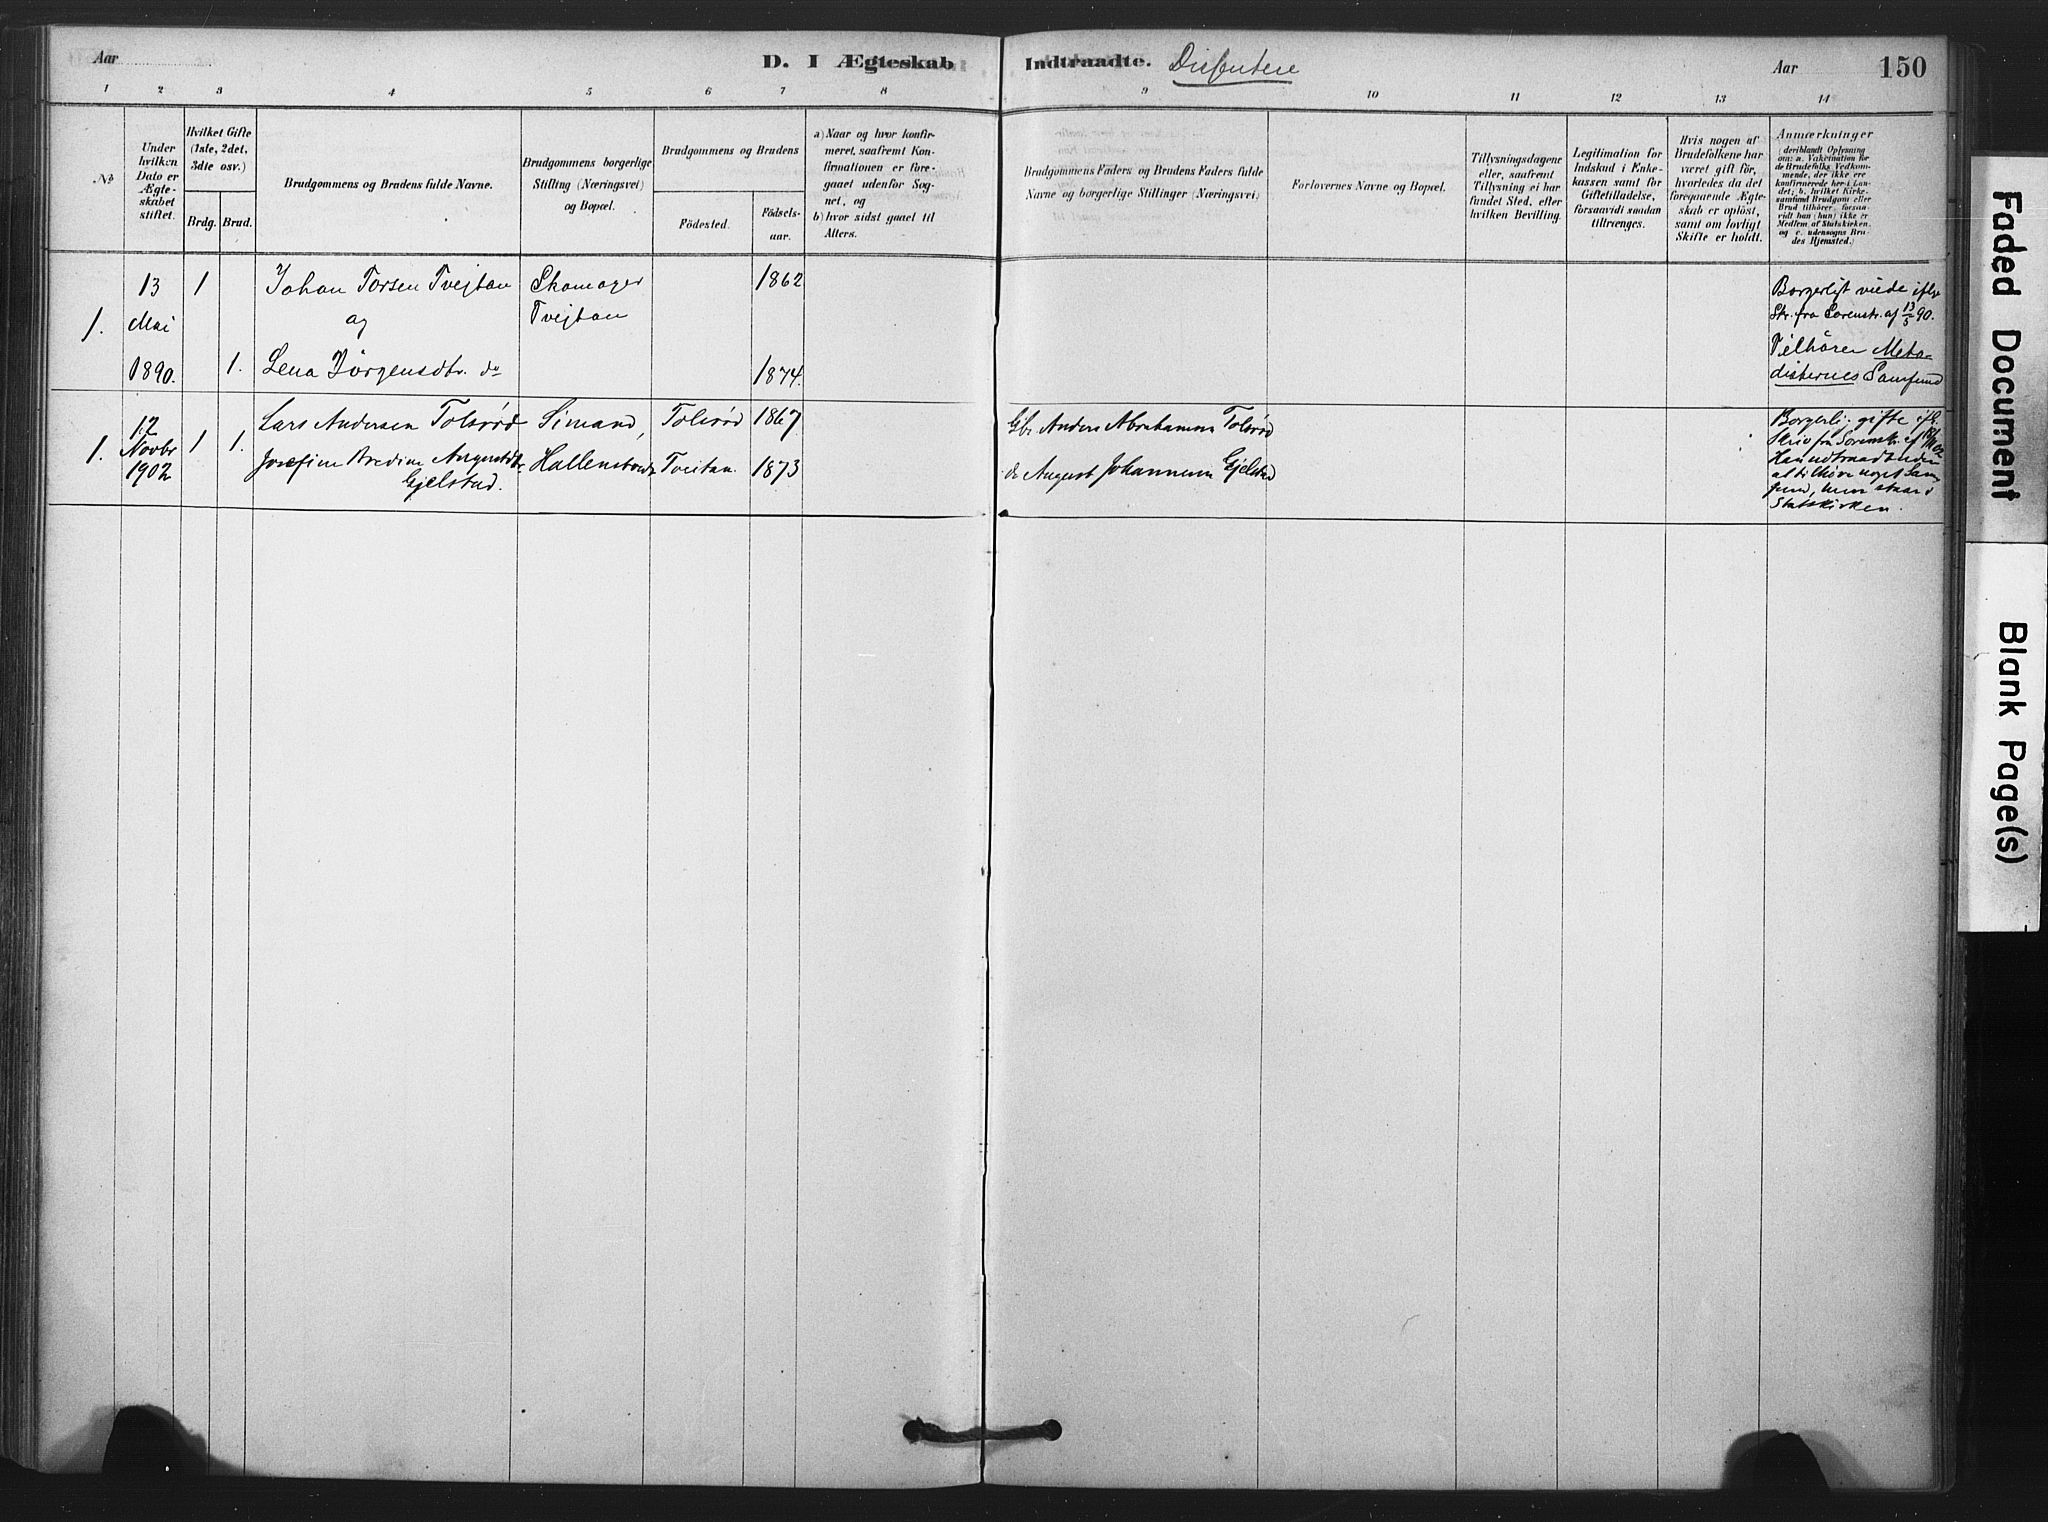 Aar
D. I Ægteskab
Indtraadte.
Disentere
Aar
150
1 2 3 4 5 6 7 8 9 10 11 12 13 14
No
Under
hvilken
Dato er
Ægte-
skabet
stiftet.
Hvilket Gifte
(1ste, 2det,
3die osv.)
Brdg. Brud.
Brudgommens og Brudens fulde Navne.
Brudgommens borgerlige
Stilling (Næringsvei)
og Bopæl.
Brudgommens og Brudens
Födested.
Födsels-
aar.
a) Naar og hvor konfir-
meret, saafremt Kon-
firmationen er fore-
gaaet udenfor Sog-
net, og
b) hvor sidst gaaet til
Alters.
Brudgommens Faders og Brudens Faders fulde
Navne og borgerlige Stillinger (Næringsvei)
Forlovernes Navne og Bopæl.
Tillysningsdagene
eller, saafremt
Tillysning ei har
fundet Sted, efter
hvilken Bevilling.
Legitimation for
Indskud i Enke-
kassen samt for
Giftetilladelse,
forsaavidt saadan
tiltrænges.
Hvis nogen af
Brudefolkene har
været gift för,
hvorledes da det
foregaaende Ægte-
skab er oplöst,
samt om lovligt
Skifte er holdt.
Anmærkninger
(deriblandt Oplysning
om: a. Vakcination for
de Brudefolks Vedkom-
mende, der ikke ere
konfirmerede her i Lan-
det; b. hvilket Kirke-
samfund Brudgom eller
Brud tilhörer, forsaa-
vidt han (hun) ikke er
Medlem af Statskirken,
og c. udensogns Bru-
des Hjemsted.)
1.
13
Mai
1890.
1
1.
Johan Torsen Tvejtan
og
Lena Jörgensdtr. do
Skomager
Tvejtan
1862
1874.
Borgerligt viede ifölge
Skr. fra Sorenskr. af 13/5 90.
Tilhörer Meto-
disternes Samfund
1.
12
Novbr
1902
1
1.
Lars Andersen Tolsrød
Josefine Bredine Augustdtr
Gjelstad.
Sömand,
Hallenstvedt
Tolsrød
Tveitan.
1867
1873
Gbr. Anders Abrahamsen Tolsrød
do August Johannesen Gjelstad
Borgerlig gifte ifl.
Skriv fra Sorenskr. af 12/11 02
Han udtraadt uden
at tilhöre noget Sam-
fund, hun staar i
Statskirken.
Faded Document
Blank Page(s)